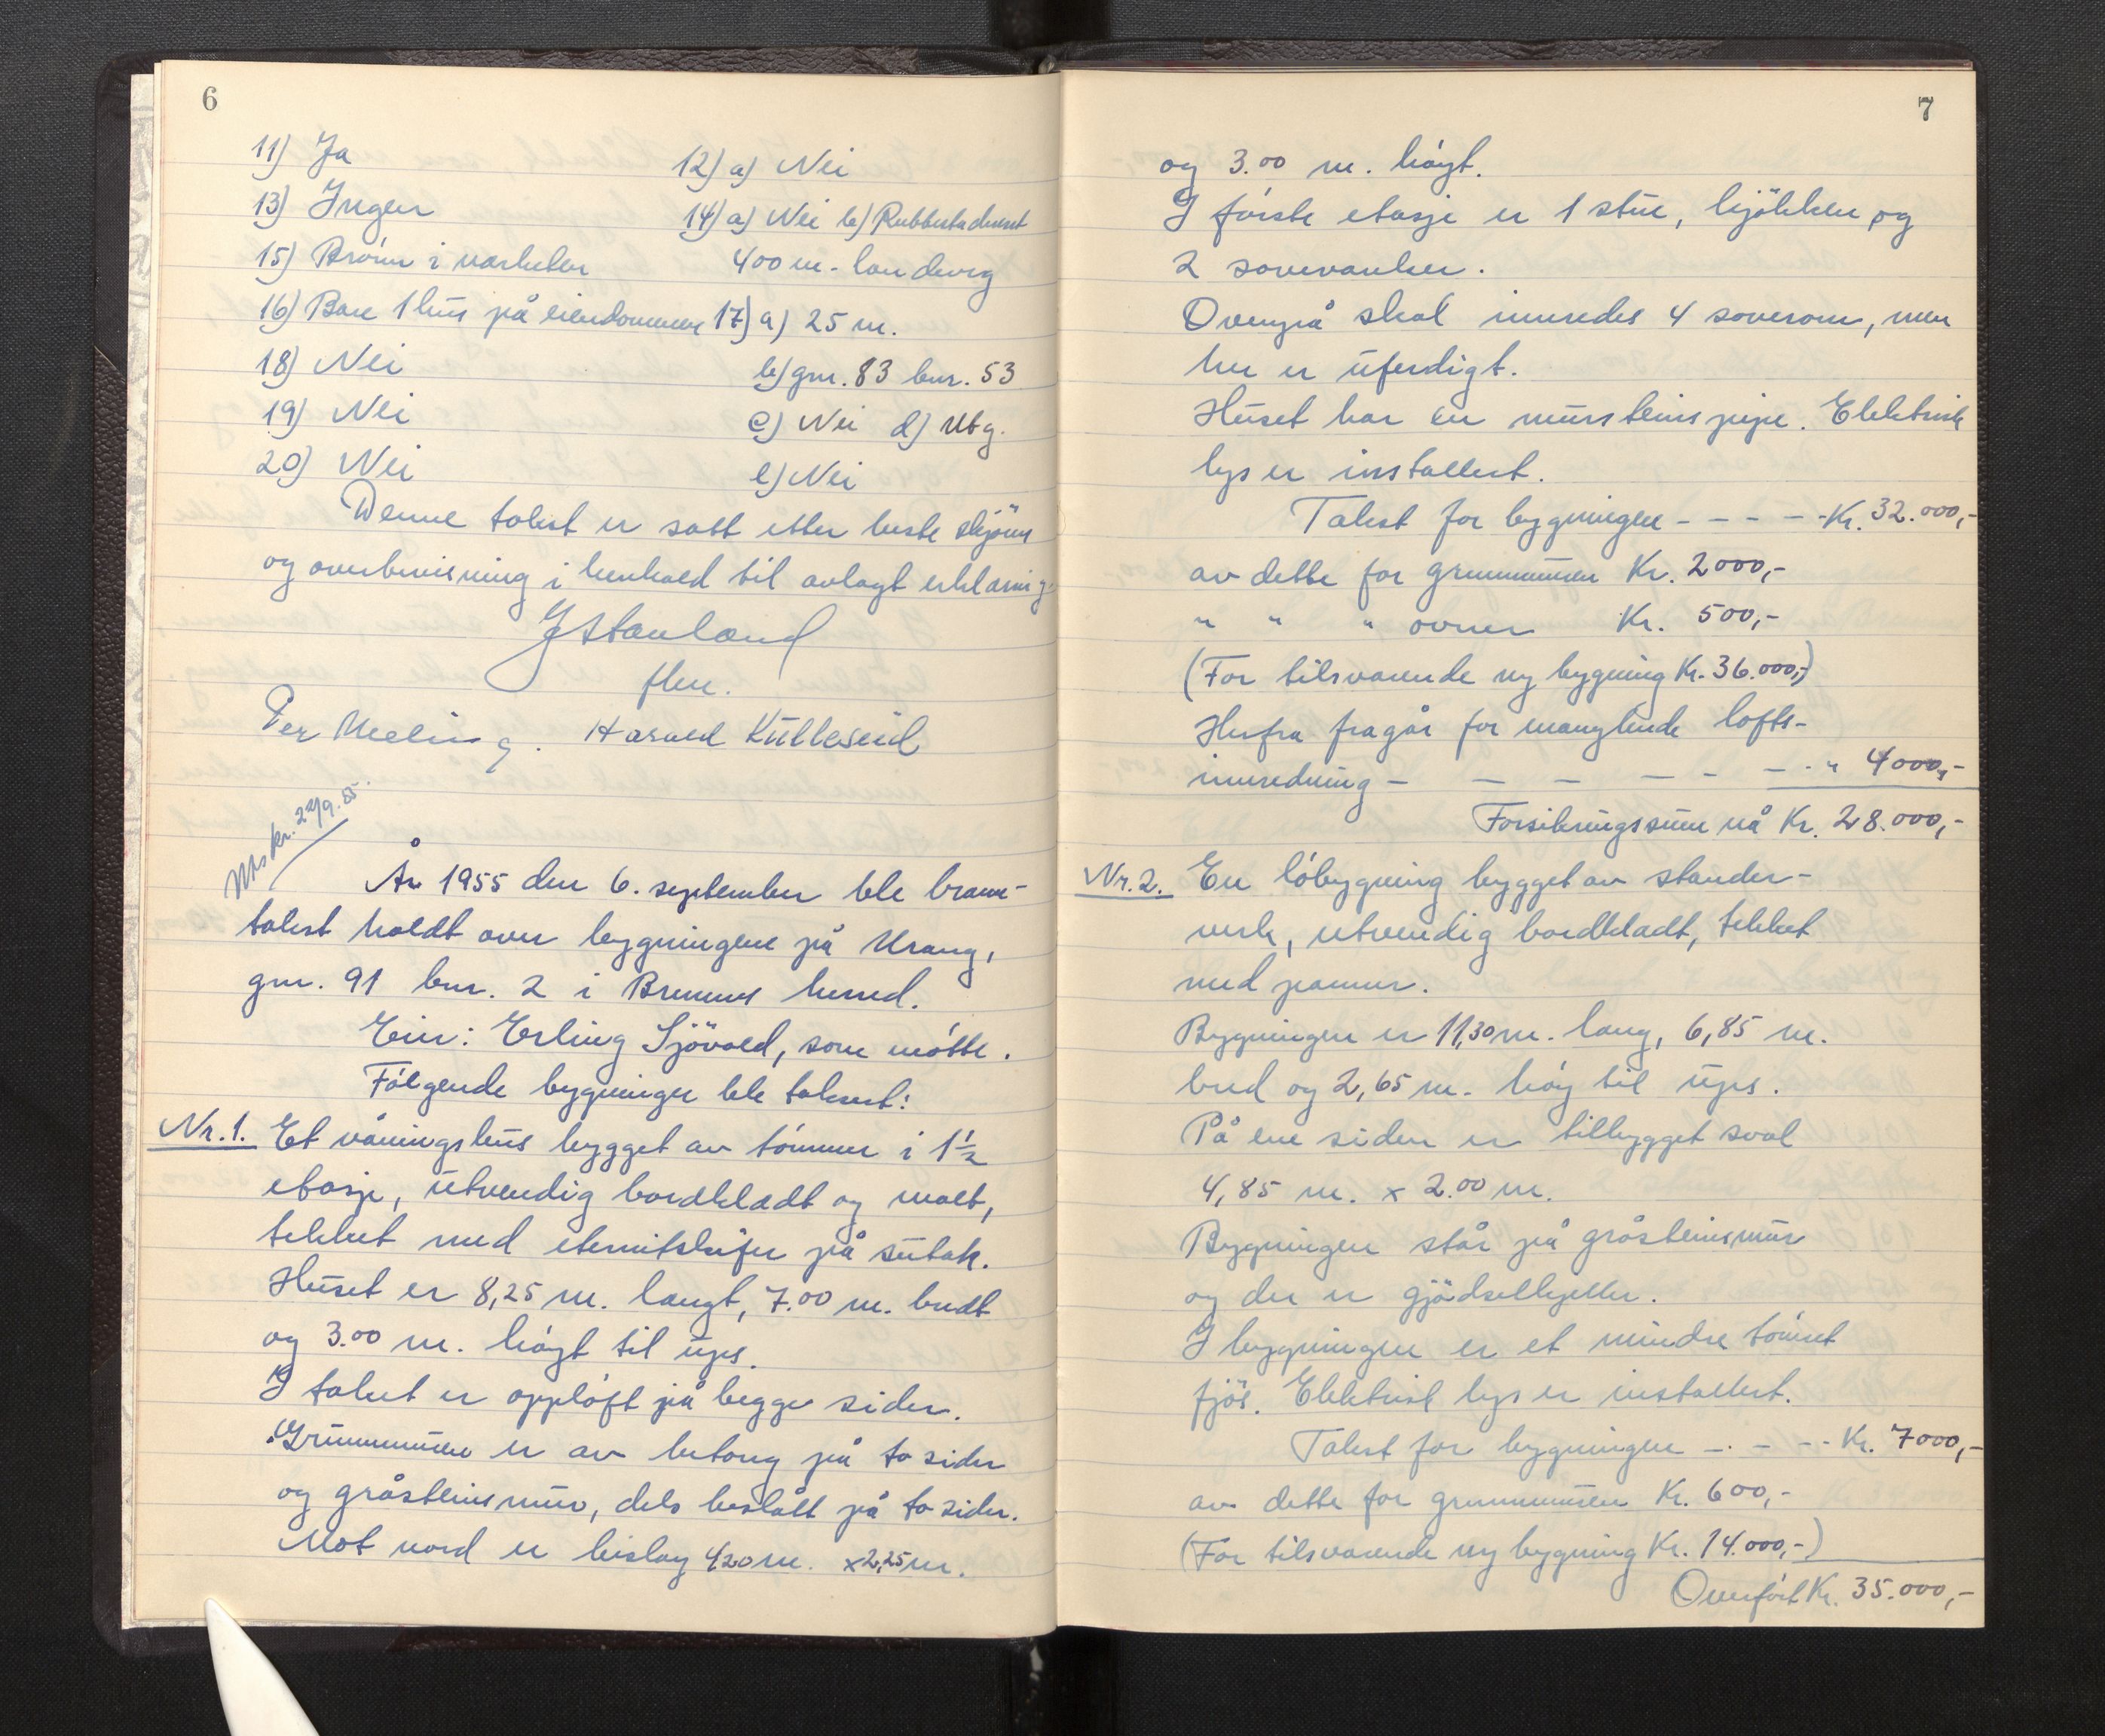 6
11) Ja
12) a) Nei
13) Ingen
14) a) Nei b) Rubbestadneset
15) Brønn i nærheten
400 m. landveg
16) Bare 1 hus på eiendommen
17) a) 25 m.
18) Nei
b) gnr. 83 bnr. 53
19) Nei
c) Nei d) Utg.
20) Nei
e) Nei
Denne takst er satt etter beste skjønn
og overbevisning i henhold til avlagt erklæring.
J Stauland
flm.
Per Meling. Harald Kulleseid
Utskr. 22/9.55.
År 1955 den 6. september ble brann-
takst holdt over bygningene på Urang,
gnr. 91 bnr. 2 i Bremnes herred.
Eier: Erling Sjövold, som møtte.
Følgende bygninger ble taksert:
Nr. 1. Et våningshus bygget av tømmer i 1 1/2
etasje, utvendig bordkledt og malt,
tekket med eternitskifer på sutak.
Huset er 8,25 m. langt, 7.00 m. bredt
og 3.00 m. høgt til ups.
I taket er oppløft på begge sider.
Grunnmuren er av betong på to sider
og gråsteinsmur, dels beslått på to sider.
Mot nord er bislag 4,20 m. x 2,25 m.
7
og 3.00 m. høgt.
I første etasje er 1 stue, kjökken og
2 soveværelser.
Ovenpå skal innredes 4 soverom, men
her er uferdigt.
Huset har en mursteinspipe. Elektrisk
lys er installert.
Takst for bygningen - - - - - Kr. 32.000,-
av dette for grunnmuren Kr. 2000,-
" " " ovner Kr. 500,-
(For tilsvarende ny bygning Kr. 36.000,-)
Herfra fragår for manglende lofts-
innredning - - - - - - - " 4000,-
Forsikringssum nå Kr. 28.000,-
Nr. 2. En löbygning bygget av stender-
verk, utvendig bordkledt, tekket
med panner.
Bygningen er 11,30 m. lang, 6,85 m.
bred og 2,65 m. høg til ups.
På ene siden er tilbygget sval
4,85 m. x 2.00 m.
Bygningen står på gråsteinsmur
og der er gjödselkjeller.
I bygningen er et mindre tømret
fjös. Elektrisk lys er installert.
Takst for bygningen - - - - Kr. 7000,-
av dette for grunnmuren Kr. 600,-
(For tilsvarende ny bygning Kr. 14.000,-)
Overført Kr. 35.000,-